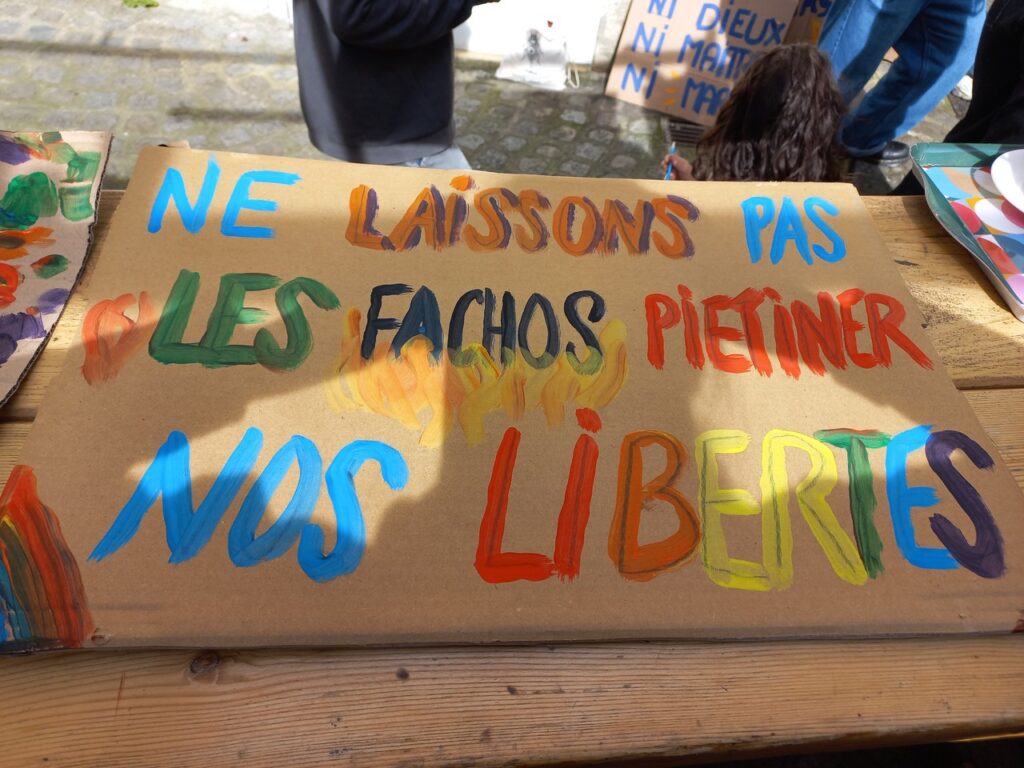 NI DIEUX
NI
NI
NE LAISSONS PAS
LES FACHOS PIETINER
NOS LIBERTES